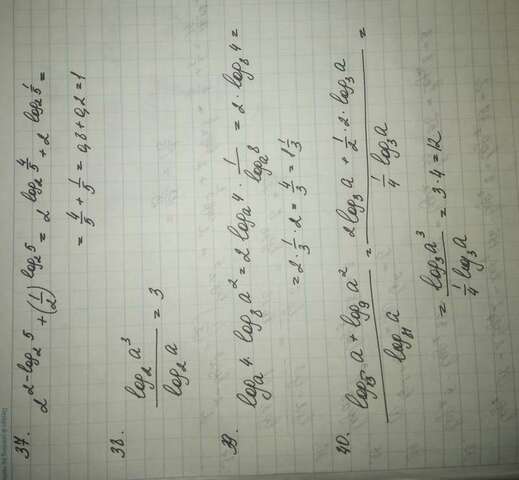 37. 2^{2-log_2 5} + (1/2)^{log_2 5} = 2^{log_2 4/5} + 2^{log_2 1/5} =
= 4/5 + 1/5 = 0,8 + 0,2 = 1
38. log_2 a^3 / log_2 a = 3
39. log_a 4 · log_8 a^2 = 2 log_a 4 · 1/log_a 8 = 2 · log_8 4 =
= 2 · 1/3 · 2 = 4/3 = 1 1/3
= (2 log_3 a + 1/2 · 2 · log_3 a) / (1/4 log_3 a) =
= log_3 a^3 / (1/4 log_3 a) = 3 · 4 = 12